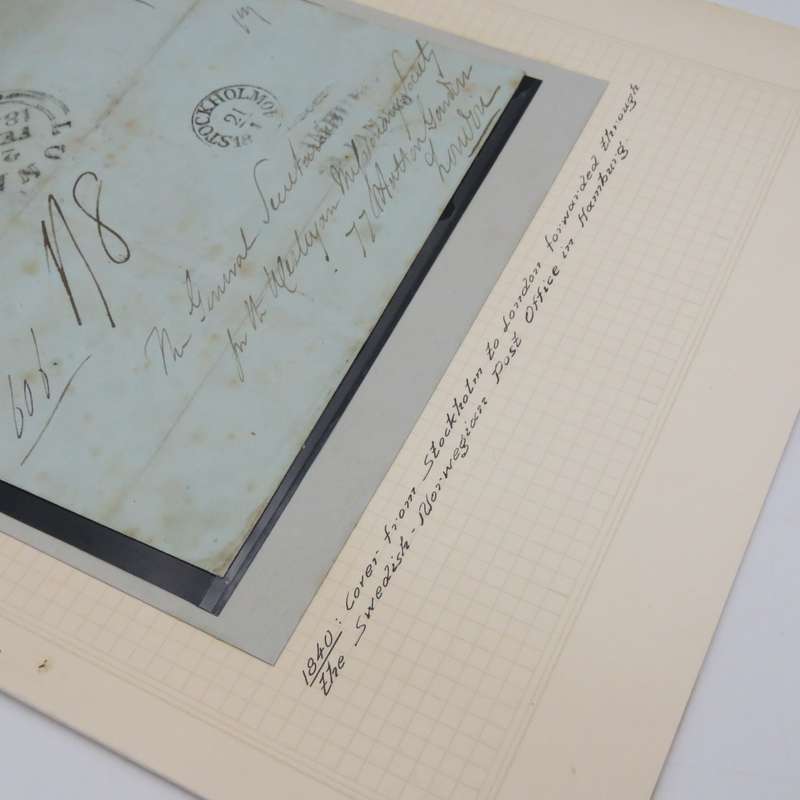 STOCKHOLM
21
1
LON
18
FE
1/8
605.
The General Secretaries
for the Wesleyan Missionary Society
77 Hatton Garden
London
1840: Cover from Stockholm to London forwarded through
the Swedish-Norwegian Post Office in Hamburg.